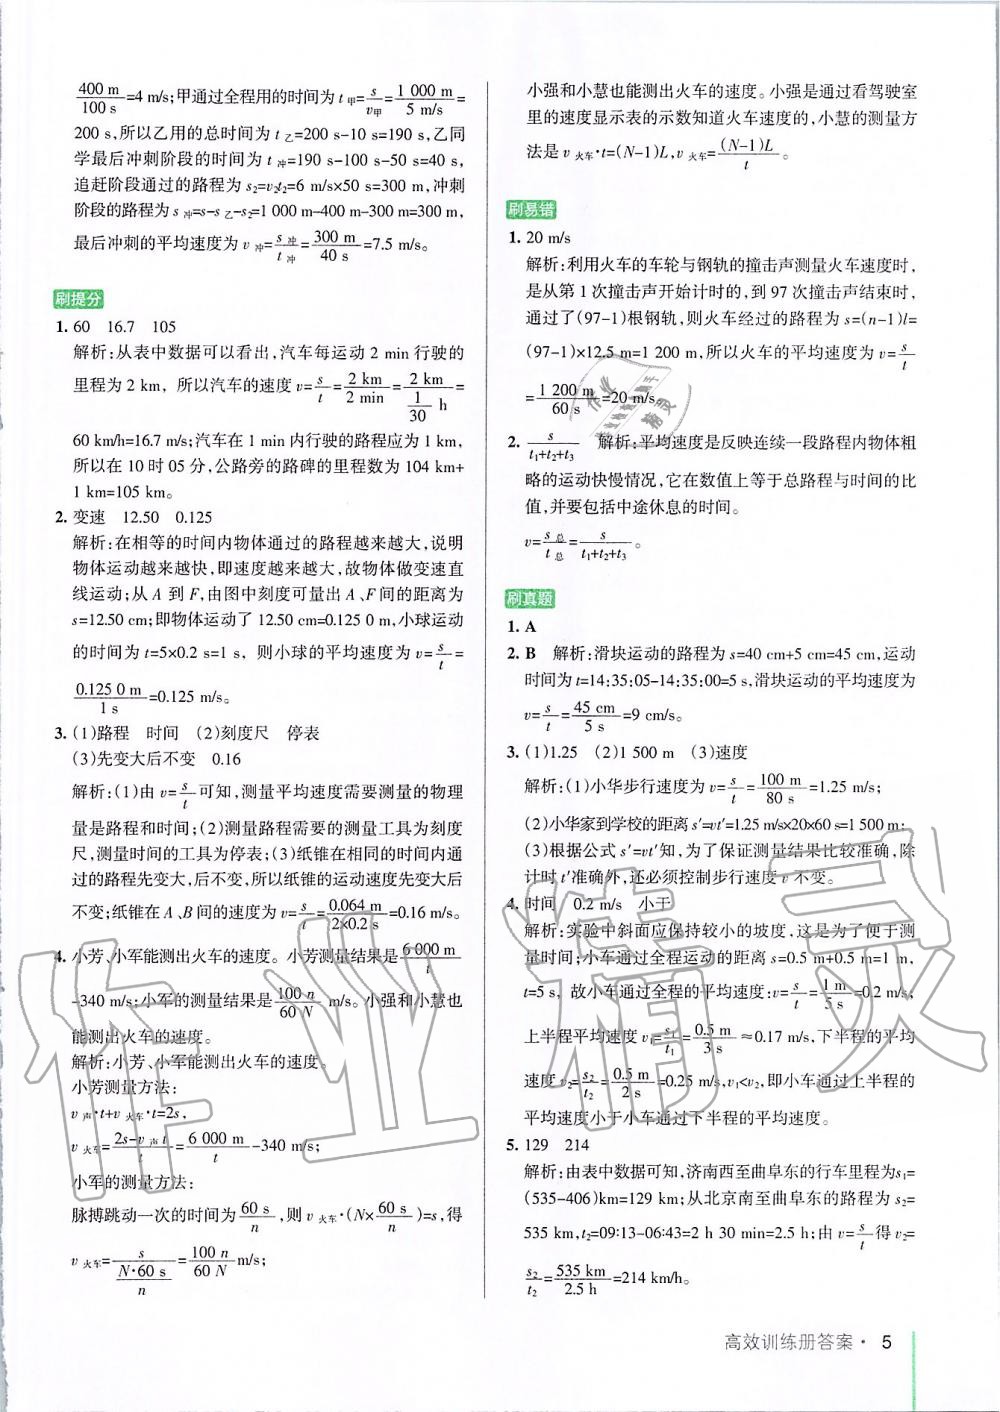 400 m/100 s=4 m/s;甲通过全程用的时间为 t甲=s/v甲=1 000 m/5 m/s=
200 s,所以乙用的总时间为 t乙=200 s-10 s=190 s,乙同
学最后冲刺阶段的时间为 t冲=190 s-100 s-50 s=40 s,
追赶阶段通过的路程为 s2=v2t2=6 m/s×50 s=300 m,冲刺
阶段的路程为 s冲=s-s乙-s2=1 000 m-400 m-300 m=300 m,
最后冲刺的平均速度为 v冲=s冲/t冲=300 m/40 s=7.5 m/s。
刷提分
1. 60 16.7 105
解析:从表中数据可以看出,汽车每运动 2 min 行驶的
里程为 2 km, 所以汽车的速度 v=s/t=2 km/2 min=2 km/(1/30 h)=
60 km/h=16.7 m/s;汽车在 1 min 内行驶的路程应为 1 km,
所以在 10 时 05 分,公路旁的路碑的里程数为 104 km+
1 km=105 km。
2. 变速 12.50 0.125
解析:在相等的时间内物体通过的路程越来越大,说明
物体运动越来越快,即速度越来越大,故物体做变速直
线运动;从 A 到 F,由图中刻度可量出 A、F 间的距离为
s=12.50 cm;即物体运动了 12.50 cm=0.125 0 m,小球运动
的时间为 t=5×0.2 s=1 s, 则小球的平均速度为 v=s/t=
0.125 0 m/1 s=0.125 m/s。
3. (1)路程 时间 (2)刻度尺 停表
(3)先变大后不变 0.16
解析:(1)由 v=s/t可知,测量平均速度需要测量的物理
量是路程和时间;(2)测量路程需要的测量工具为刻度
尺,测量时间的工具为停表;(3)纸锥在相同的时间内通
过的路程先变大,后不变,所以纸锥的运动速度先变大后
不变;纸锥在 A、B 间的速度为 v=s/t=0.064 m/2×0.2 s=0.16 m/s。
4. 小芳、小军能测出火车的速度。小芳测量结果是6 000 m/t
-340 m/s;小军的测量结果是100 n/60 N m/s。小强和小慧也
能测出火车的速度。
解析:小芳、小军能测出火车的速度。
小芳测量方法:
v声·t+v火车·t=2s,
v火车=2s-v声t/t=6 000 m/t-340 m/s;
小军的测量方法:
脉搏跳动一次的时间为60 s/n,则 v火车·(N×60 s/n)=s,得
v火车=s/(N·60 s/n)=100 n/60 N m/s;
小强和小慧也能测出火车的速度。小强是通过看驾驶室
里的速度显示表的示数知道火车速度的,小慧的测量方
法是 v火车·t=(N-1)L,v火车=(N-1)L/t。
刷易错
1. 20 m/s
解析:利用火车的车轮与钢轨的撞击声测量火车速度时,
是从第 1 次撞击声开始计时的,到 97 次撞击声结束时,
通过了(97-1)根钢轨,则火车经过的路程为 s=(n-1)l=
(97-1)×12.5 m=1 200 m,所以火车的平均速度为 v=s/t
=1 200 m/60 s=20 m/s。
2. s/t1+t2+t3 解析:平均速度是反映连续一段路程内物体粗
略的运动快慢情况,它在数值上等于总路程与时间的比
值,并要包括中途休息的时间。
v=s总/t总=s/t1+t2+t3。
刷真题
1. A
2. B 解析:滑块运动的路程为 s=40 cm+5 cm=45 cm,运动
时间为 t=14:35:05-14:35:00=5 s,滑块运动的平均速度为
v=s/t=45 cm/5 s=9 cm/s。
3. (1)1.25 (2)1 500 m (3)速度
解析:(1)小华步行速度为 v=s/t=100 m/80 s=1.25 m/s;
(2)小华家到学校的距离 s′=vt′=1.25 m/s×20×60 s=1 500 m;
(3)根据公式 s′=vt′知,为了保证测量结果比较准确,除
计时 t′准确外,还必须控制步行速度 v 不变。
4. 时间 0.2 m/s 小于
解析:实验中斜面应保持较小的坡度,这是为了便于测
量时间;小车通过全程运动的距离 s=0.5 m+0.5 m=1 m,
t=5 s, 故小车通过全程的平均速度:v=s/t=1 m/5 s=0.2 m/s;
上半程平均速度 v1=s1/t1=0.5 m/3 s≈0.17 m/s,下半程的平均
速度 v2=s2/t2=0.5 m/2 s=0.25 m/s,v1<v2,即小车通过上半程的
平均速度小于小车通过下半程的平均速度。
5. 129 214
解析:由表中数据可知,济南西至曲阜东的行车里程为 s1=
(535-406)km=129 km;从北京南至曲阜东的路程为 s2=
535 km,t2=09:13-06:43=2 h 30 min=2.5 h;由 v=s/t得 v2=
s2/t2=535 km/2.5 h=214 km/h。
高效训练册答案·5
作业精灵